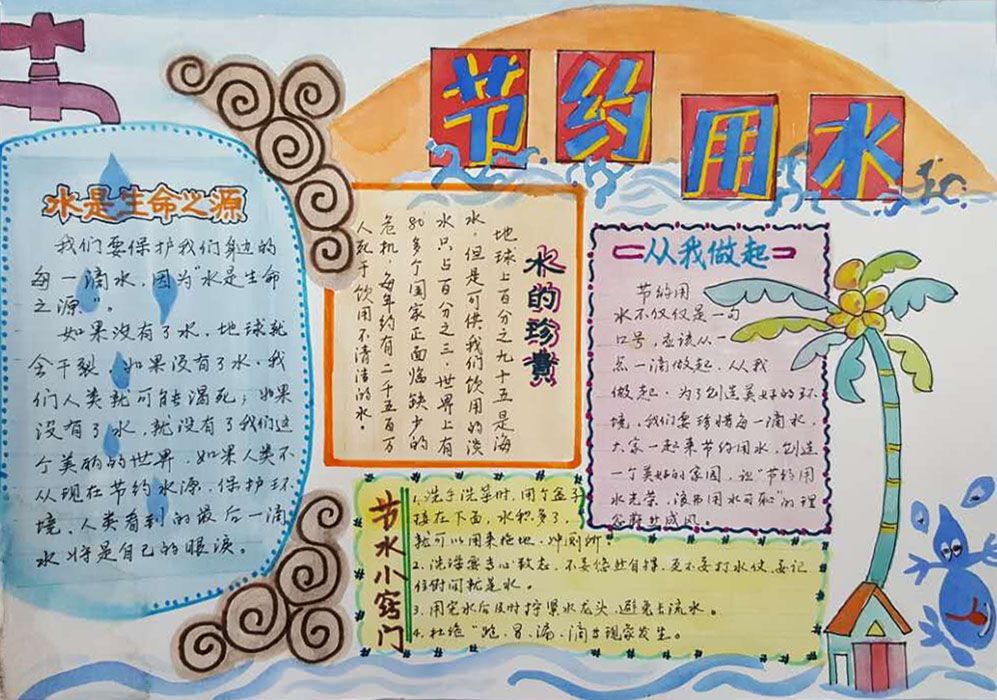 节约用水
水是生命之源
我们要保护我们身边的
每一滴水，因为“水是生命
之源”。
如果没有了水，地球就
会干裂，如果没有了水，我
们人类就可能渴死；如果
没有了水，就没有了我们这
个美丽的世界，如果人类不
从现在节约水源，保护环
境，人类看到的最后一滴
水将是自己的眼泪。
水的珍贵
地球上百分之九十五是海
水，但是可供我们饮用的淡
水只占百分之三，世界上有
80多个国家正面临缺少的
危机，每年约有二千五百万
人死于饮用不清洁的水。
从我做起
节约用
水不仅仅是一句
口号，应该从一
点一滴做起，从我
做起，为了创造美好的环
境，我们要珍惜每一滴水，
大家一起来节约用水，创造
一个美好的家园，让“节约用
水光荣，浪费用水可耻”的理
念蔚然成风。
节水小窍门
1.洗手洗菜时，用个盆子
接在下面，水积多了，
就可以用来拖地，冲厕所。
2.洗澡要专心致志，不要悠然自得，更不要打水仗，要记
住时间就是水。
3.用完水后及时拧紧水龙头，避免长流水。
4.杜绝“跑、冒、漏、滴”现象发生。